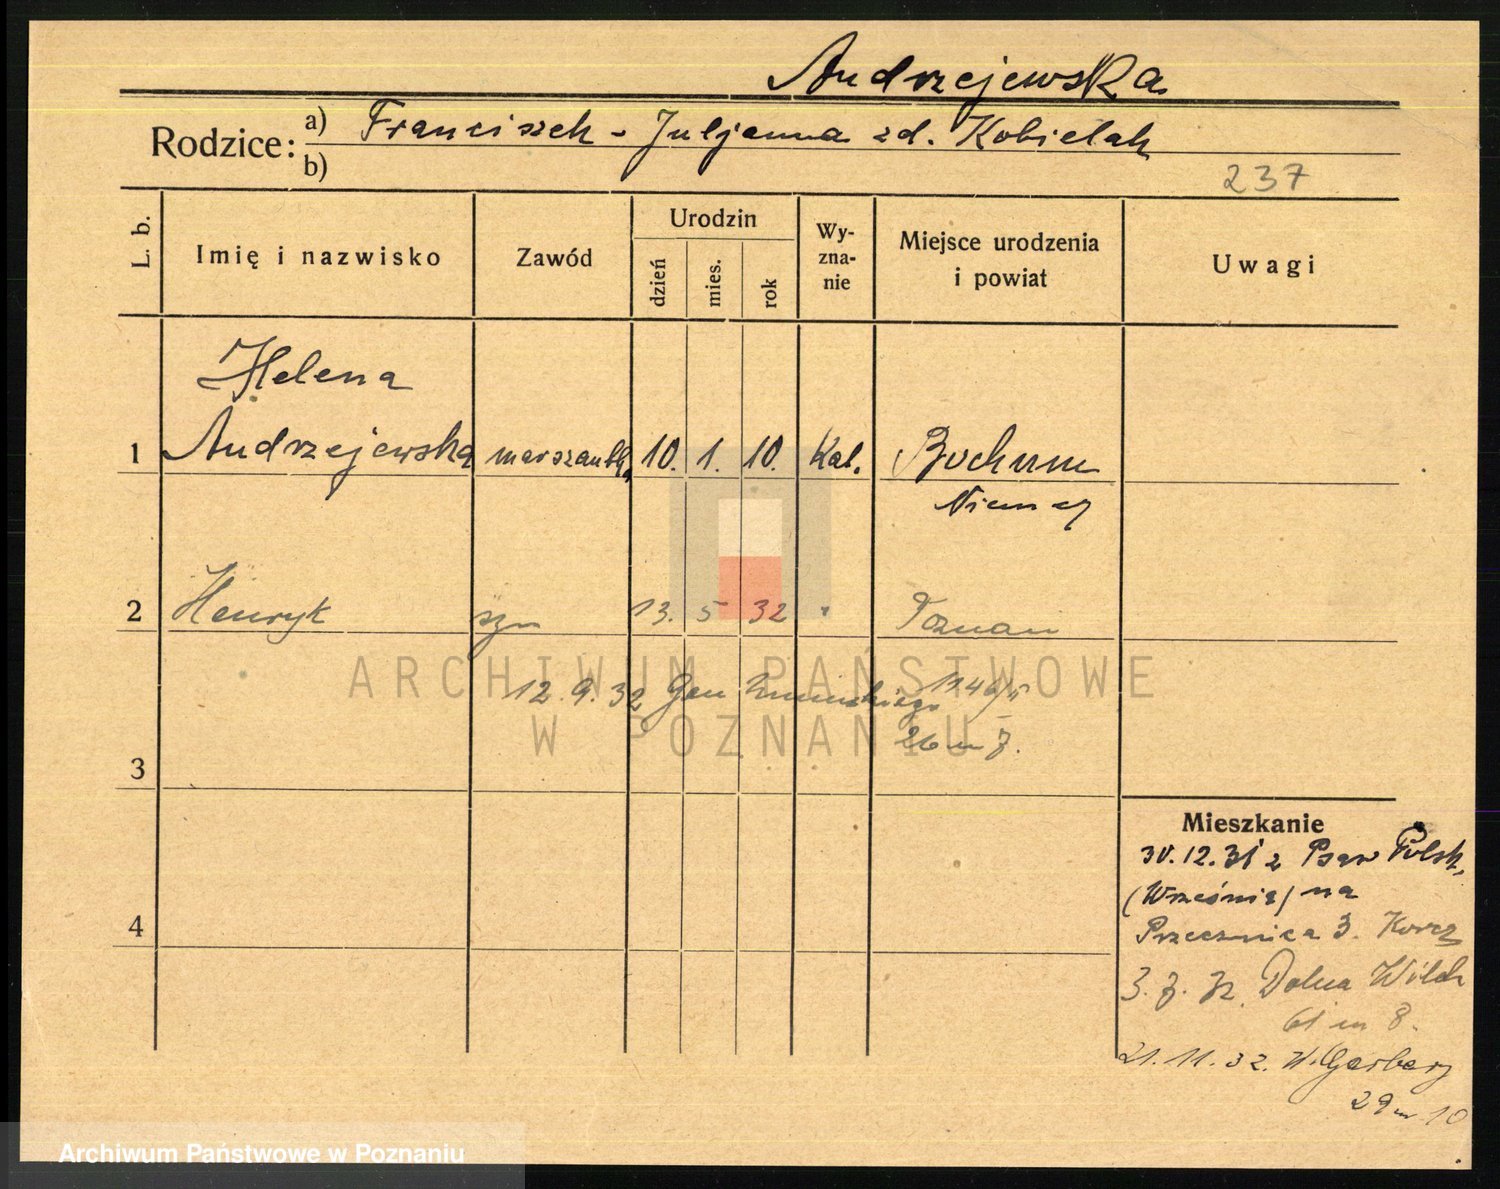 Andrzejewska
Rodzice: a) Franciszek - Juljanna zd. Kobielak
b)
237
L. b.
Imię i nazwisko
Zawód
Urodzin
dzień
mies.
rok
Wy-
zna-
nie
Miejsce urodzenia
i powiat
Uwagi
Helena
1 Andrzejewska 10. 1. 10. Kat. Bochum
Niemcy
2 Henryk syn 13. 5 32 " Poznań
12.9.32 Gen
26 m 7.
3
4
Mieszkanie
30.12.31 z Psar Polsk.
(Września) na
Przecznica 3.
3.7.32 Dolna Wilda
61 m 8.
21.11.32. W. Garbary
29 m 10
ARCHIWUM PAŃSTWOWE
W POZNANIU
Archiwum Państwowe w Poznaniu